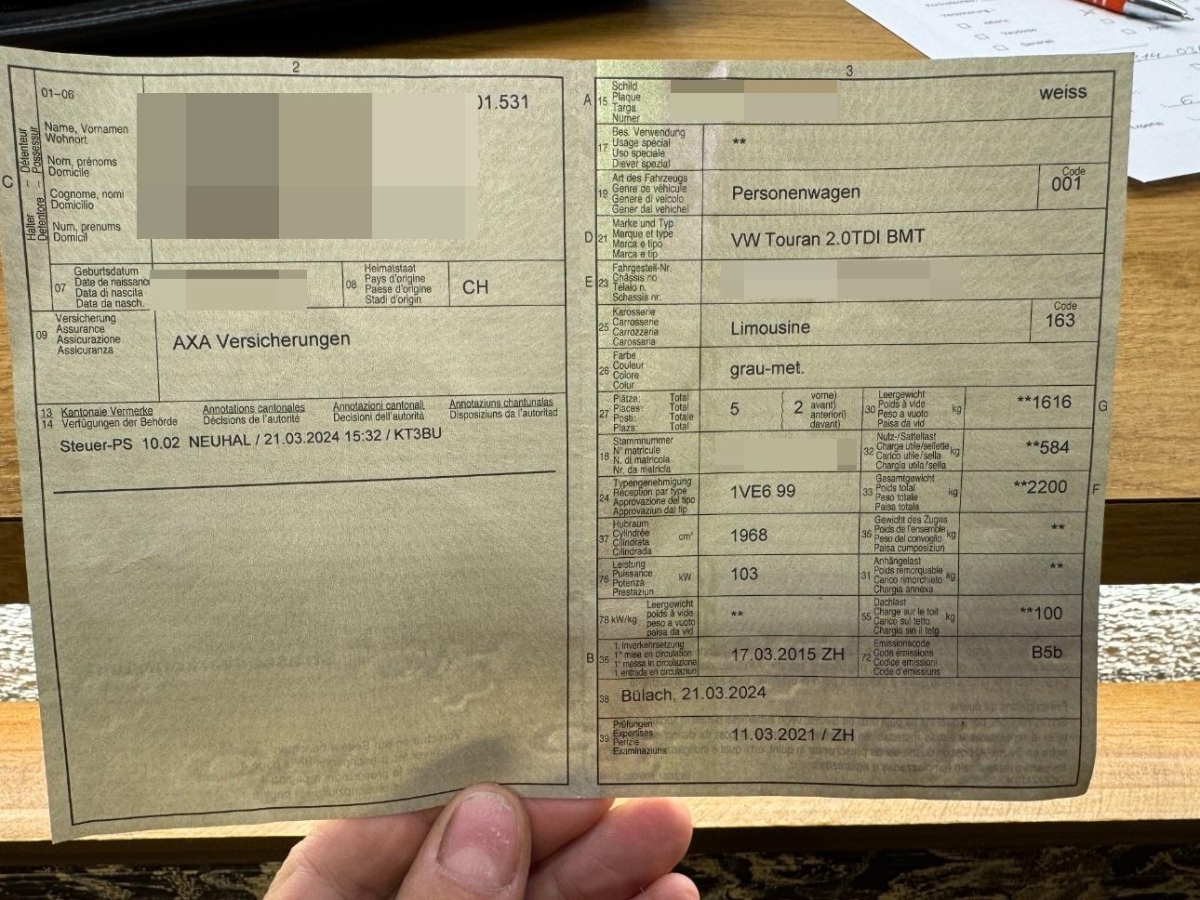 2
01-06
01.531
Halter – Détenteur
Detentore – Possessur
C
Name, Vornamen
Wohnort
Nom, prénoms
Domicile
Cognome, nomi
Domicilio
Num, prenums
Domicil
07
Geburtsdatum
Date de naissance
Data di nascita
Data da nasch.
08
Heimatstaat
Pays d'origine
Paese d'origine
Stadi d'origin
CH
09
Versicherung
Assurance
Assicurazione
Assicuranza
AXA Versicherungen
13 Kantonale Vermerke Annotations cantonales Annotazioni cantonali Annotaziuns chantunalas
14 Verfügungen der Behörde Décisions de l'autorité Decisioni dell'autorità Disposiziuns da l'autoritad
Steuer-PS 10.02 NEUHAL / 21.03.2024 15:32 / KT3BU
3
A
15
Schild
Plaque
Targa
Numer
weiss
17
Bes. Verwendung
Usage spécial
Uso speciale
Diever spezial
**
19
Art des Fahrzeugs
Genre de véhicule
Genere di veicolo
Gener dal vehichel
Personenwagen
Code
001
D
21
Marke und Typ
Marque et type
Marca e tipo
Marca e tip
VW Touran 2.0TDI BMT
E
23
Fahrgestell-Nr.
Châssis no
Telaio n.
Schassis nr.
25
Karosserie
Carrosserie
Carrozzeria
Carossaria
Limousine
Code
163
26
Farbe
Couleur
Colore
Colur
grau-met.
27
Plätze: Total
Places: Total
Posti: Totale
Plazs: Total
5
2
vorne)
avant)
anteriori)
davant)
30
Leergewicht
Poids à vide
Peso a vuoto
Paisa da vid
kg
**1616
G
18
Stammnummer
N° matricule
N. di matricola
Nr. da matricla
32
Nutz-/Sattellast
Charge utile/sellette
Carico utile/sella
Chargia utila/sella
kg
**584
24
Typengenehmigung
Réception par type
Approvazione del tipo
Approvaziun dal tip
1VE6 99
33
Gesamtgewicht
Poids total
Peso totale
Paisa totala
kg
**2200
F
37
Hubraum
Cylindrée
Cilindrata
Cilindrada
cm³
1968
35
Gewicht des Zuges
Poids de l'ensemble
Peso del convoglio
Paisa cumposiziun
kg
**
76
Leistung
Puissance
Potenza
Prestaziun
kW
103
31
Anhängelast
Poids remorquable
Carico rimorchiato
Chargia annexa
kg
**
78 kW/kg
Leergewicht
poids à vide
peso a vuoto
paisa da vid
**
55
Dachlast
Charge sur le toit
Carico sul tetto
Chargia sin il tetg
kg
**100
B
36
1. Inverkehrsetzung
1re mise en circulation
1a messa in circolazione
1. entrada en circulaziun
17.03.2015 ZH
72
Emissionscode
Code émissions
Codice emissioni
Code d'emissiuns
B5b
38
Bülach, 21.03.2024
39
Prüfungen
Expertises
Perizie
Examinaziuns
11.03.2021 / ZH